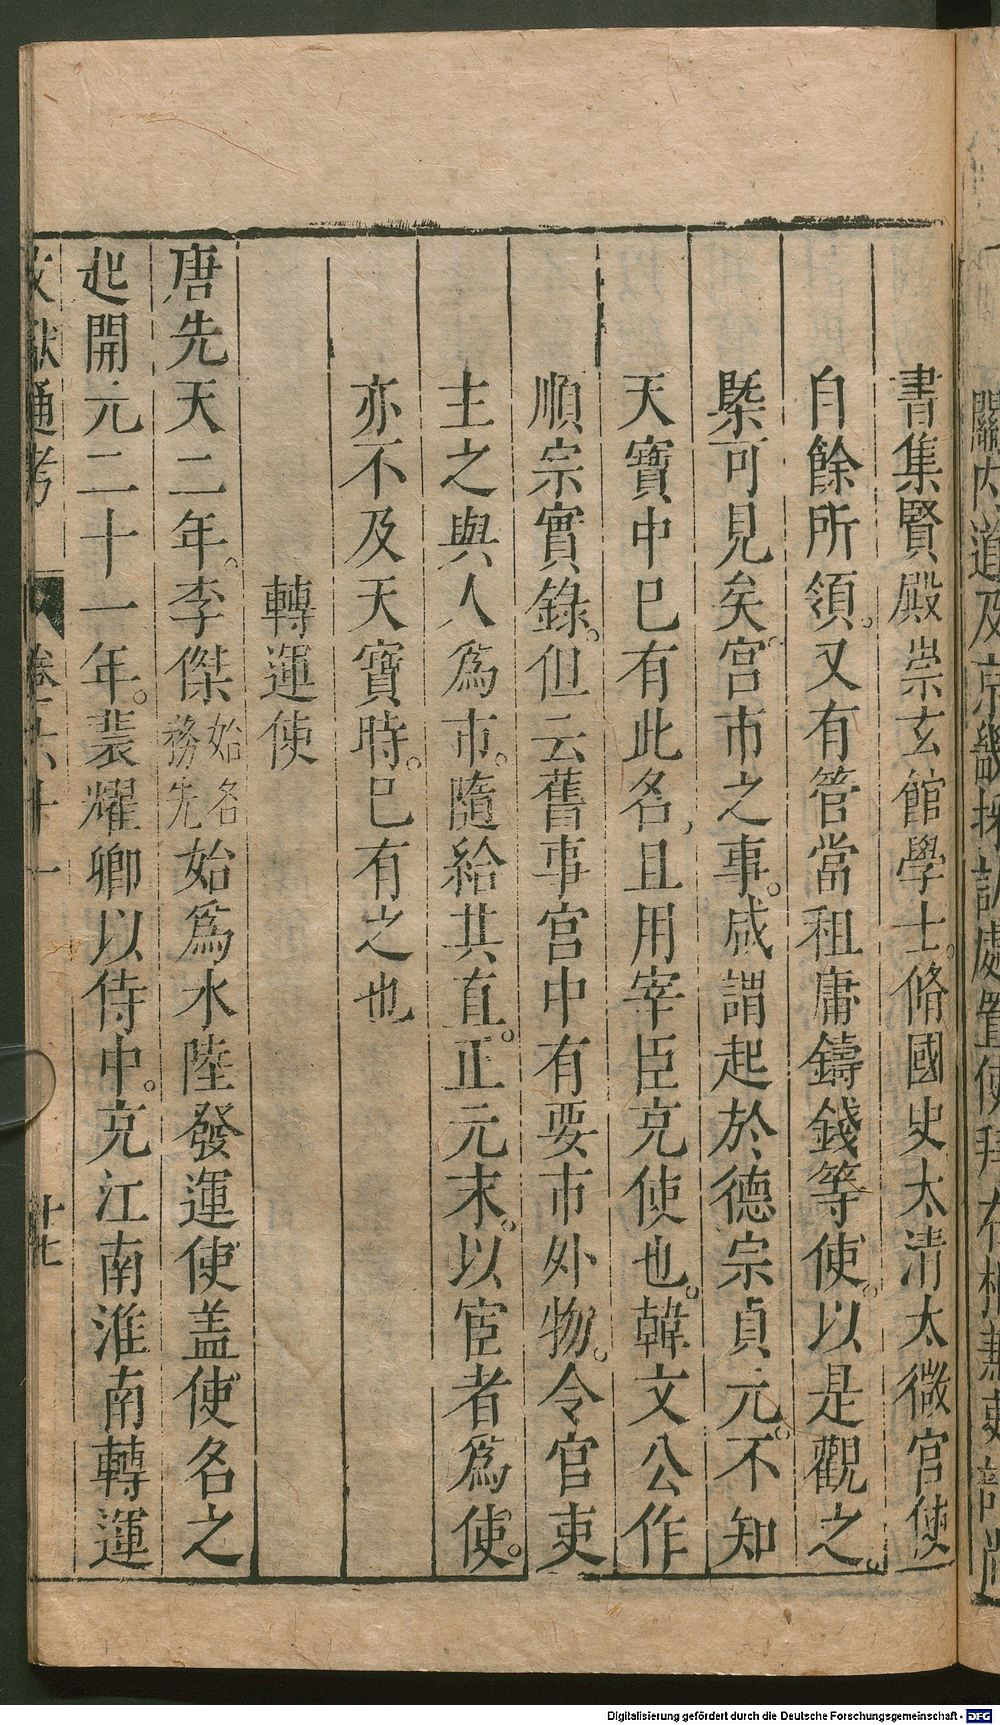 書集賢殿崇玄館學士。脩國史太清太微宮使
自餘所領。又有管當租庸鑄錢等使。以是觀之。
槩可見矣。宮市之事。咸謂起於德宗貞元。不知
天寶中已有此名、且用宰臣充使也。韓文公作
順宗實錄。但云舊事宮中有要市外物。令官吏
主之與人爲市。隨給其直。正元末。以宦者爲使。
亦不及天寶時。已有之也
轉運使
唐先天二年。李傑始名務先始爲水陸發運使盖使名之
起開元二十一年。裴耀卿以侍中。充江南淮南轉運
文獻通考 卷之六十一 十七
Digitalisierung gefördert durch die Deutsche Forschungsgemeinschaft - DFG